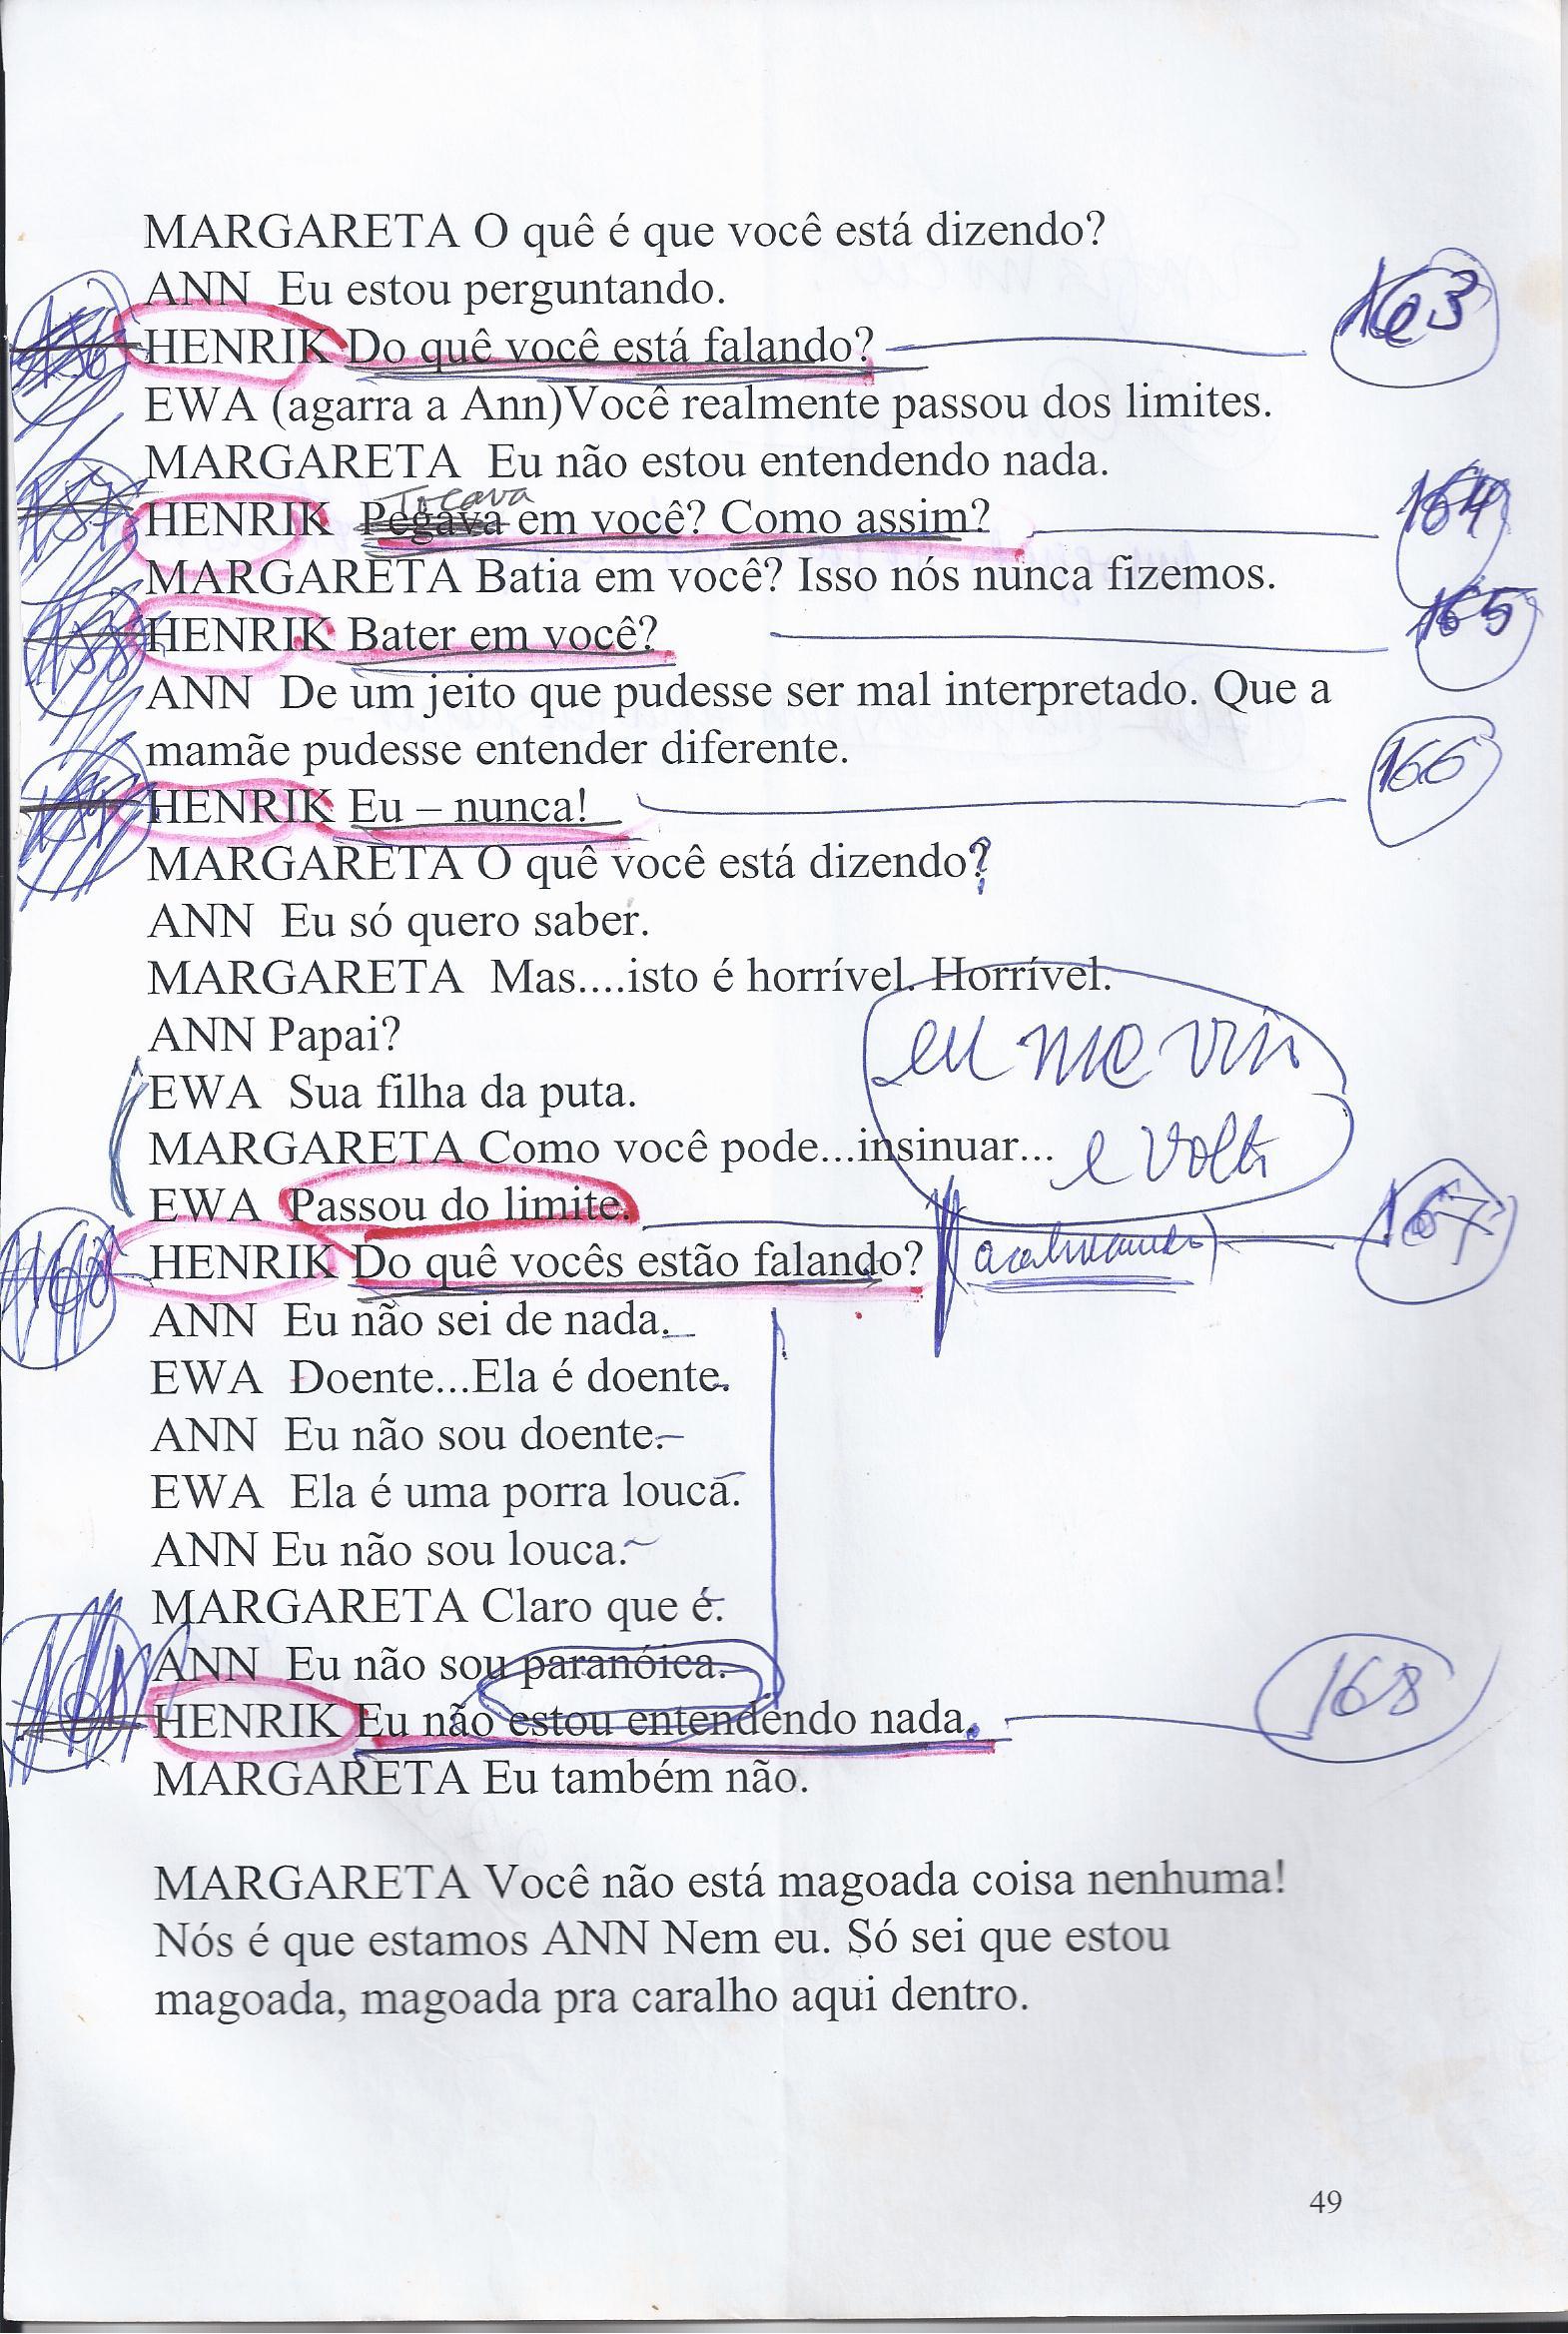 MARGARETA O quê é que você está dizendo?
ANN Eu estou perguntando.
HENRIK Do quê você está falando? 163
EWA (agarra a Ann)Você realmente passou dos limites.
MARGARETA Eu não estou entendendo nada.
Tocava
157 HENRIK Pegava em você? Como assim? 164
MARGARETA Batia em você? Isso nós nunca fizemos.
158 HENRIK Bater em você? 165
ANN De um jeito que pudesse ser mal interpretado. Que a
mamãe pudesse entender diferente.
HENRIK Eu – nunca! 166
MARGARETA O quê você está dizendo?
ANN Eu só quero saber.
MARGARETA Mas....isto é horrível. Horrível.
ANN Papai?
eu me viro
EWA Sua filha da puta.
MARGARETA Como você pode...insinuar...
e volto
EWA Passou do limite. 167
HENRIK Do quê vocês estão falando? (acalmando)
ANN Eu não sei de nada.
EWA Doente...Ela é doente.
ANN Eu não sou doente.
EWA Ela é uma porra louca.
ANN Eu não sou louca.
MARGARETA Claro que é.
ANN Eu não sou paranóica.
HENRIK Eu não estou entendendo nada. 168
MARGARETA Eu também não.
MARGARETA Você não está magoada coisa nenhuma!
Nós é que estamos ANN Nem eu. Só sei que estou
magoada, magoada pra caralho aqui dentro.
49